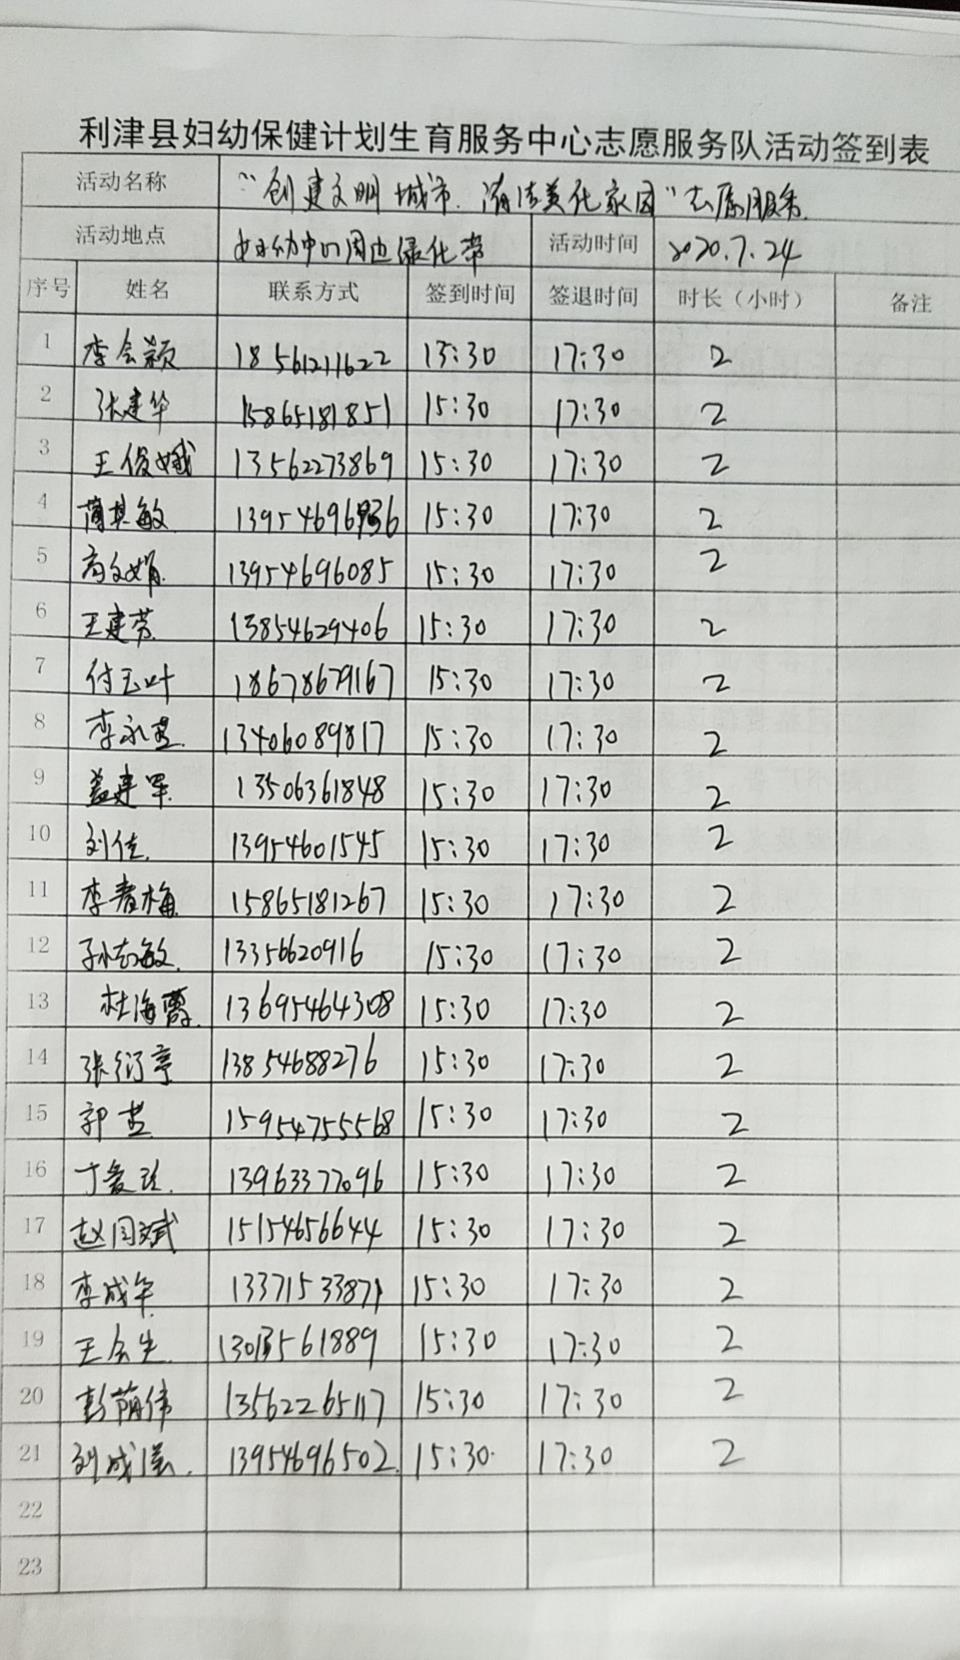 利津县妇幼保健计划生育服务中心志愿服务队活动签到表
活动名称 “创建文明城市、清洁美化家园”志愿服务
活动地点 妇幼中心周边绿化带 活动时间 2020.7.24
序号 姓名 联系方式 签到时间 签退时间 时长（小时） 备注
1 李会颖 18561211622 15:30 17:30 2
2 张建华 15865181851 15:30 17:30 2
3 王俊娥 13562273869 15:30 17:30 2
4 蔺其敏 15:30 17:30 2
5 高文娟 13954696085 15:30 17:30 2
6 王建芳 13854629406 15:30 17:30 2
7 付玉叶 18678679167 15:30 17:30 2
8 李永 13406089817 15:30 17:30 2
9 盖建军 13506361848 15:30 17:30 2
10 刘佳 13954601545 15:30 17:30 2
11 李春梅 15865181267 15:30 17:30 2
12 孙志敏 13356620916 15:30 17:30 2
13 杜海霞 13695464308 15:30 17:30 2
14 张衍亭 13854688276 15:30 17:30 2
15 郭 15954755568 15:30 17:30 2
16 丁爱 13963377096 15:30 17:30 2
17 赵国斌 15154656644 15:30 17:30 2
18 李成年 13371533871 15:30 17:30 2
19 王会生 15:30 17:30 2
20 彭荫伟 13562265117 15:30 17:30 2
21 刘成 13954696502 15:30 17:30 2
22
23